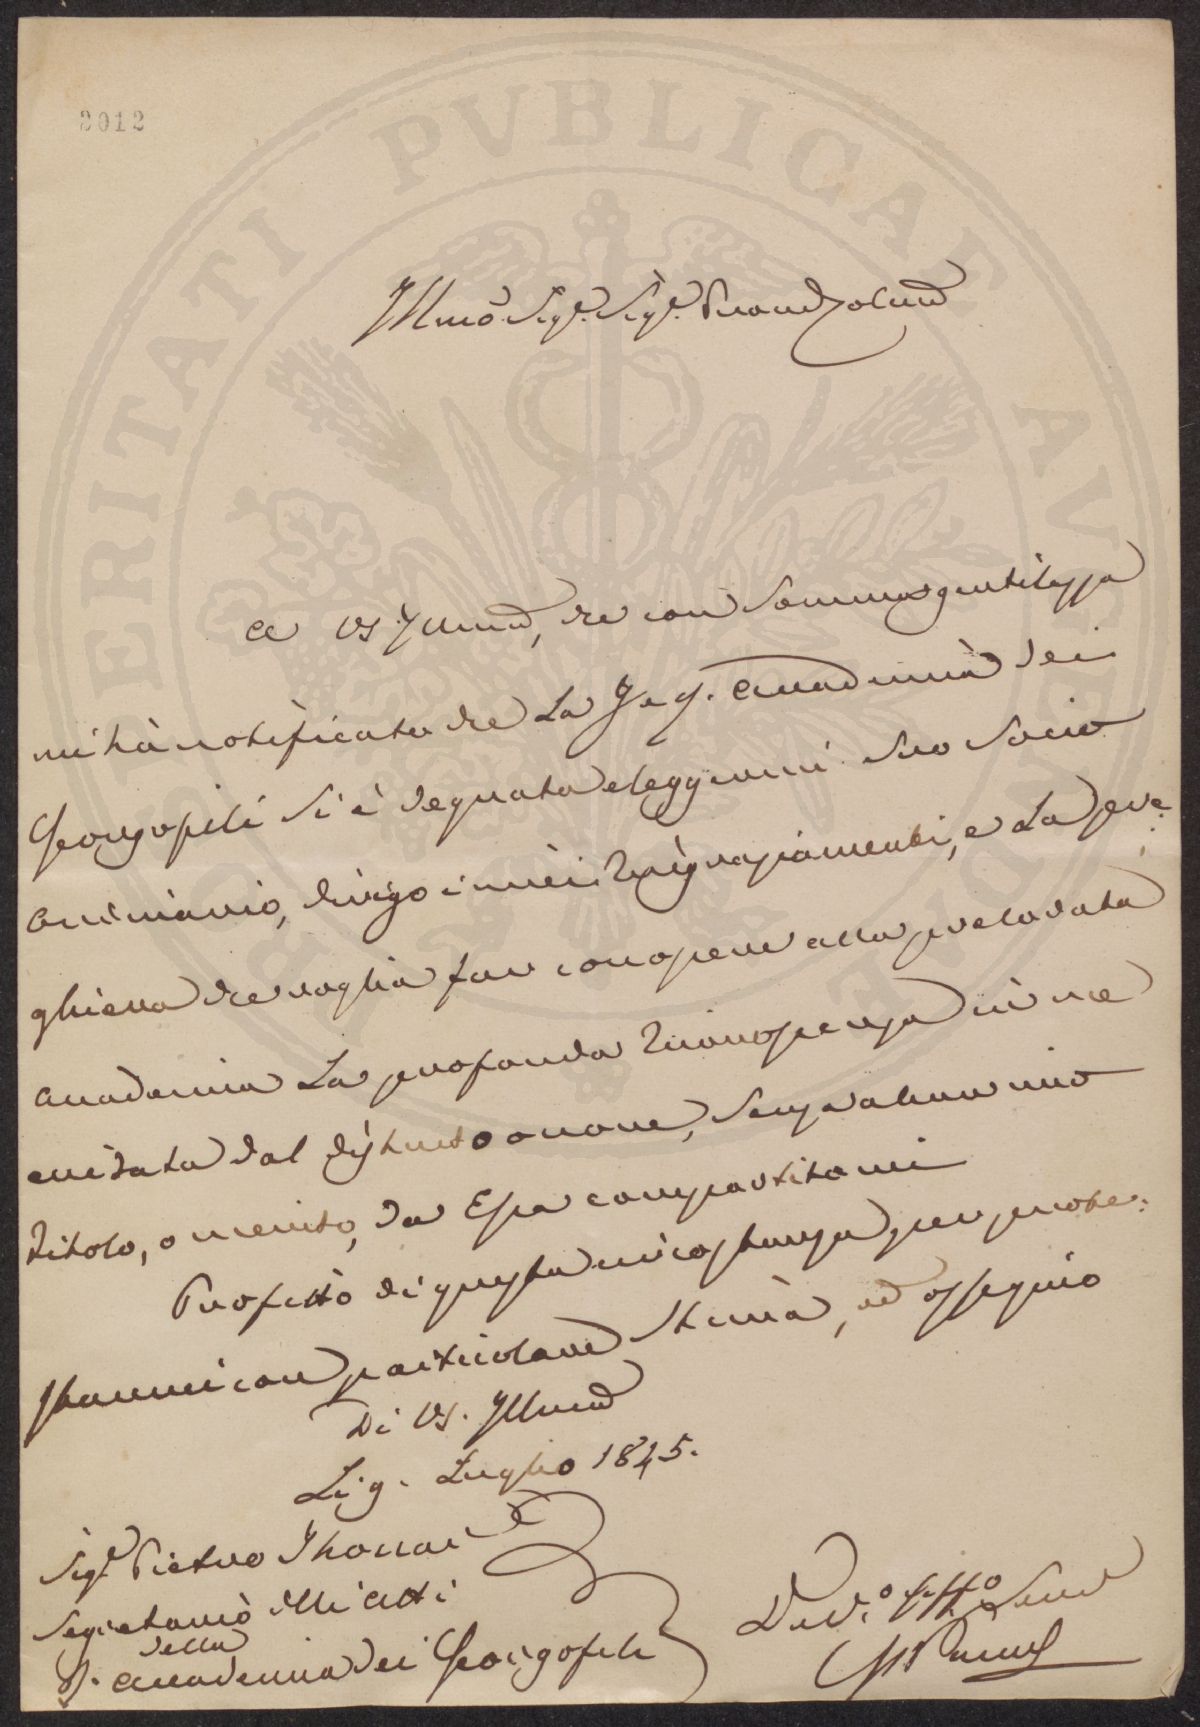 2012
PROSPERITATI PUBLICAE AUGENDAE
Illmo Sigr. Sigr. Pron Colmo
A VS. Illma, che con Somma gentilezza
mi hà notificato che La I. e R. Accademia dei
Georgofili Si è degnata eleggermi Suo Socio
Ordinario, dirigo i miei Ringraziamenti, e La pre:
ghiera che voglia far conoscere alla prelodata
Accademia La profonda Riconoscenza in me
eccitata dal distinto onore, Senza alcun mio
titolo, o merito, da Essa compartitomi
Profitto di questa circostanza per prote:
starmi con particolare Stima, ed ossequio
Di VS. Illma
Li 9. Luglio 1845.
Sigr. Pietro Thouar
Segretario delli Atti
della
Accademia dei Georgofili
Devo. Serre